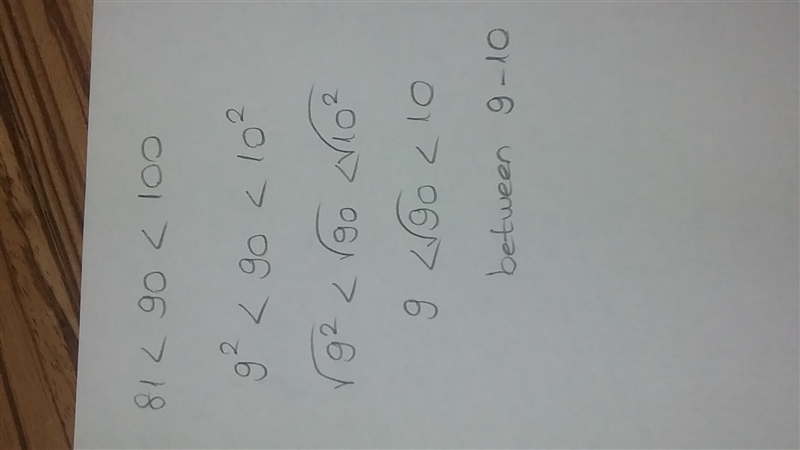 81 < 90 < 100
9² < 90 < 10²
√9² < √90 < √10²
9 < √90 < 10
between 9-10